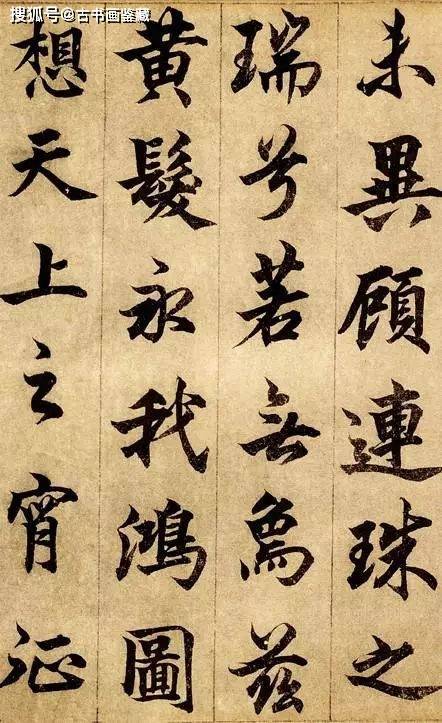 搜狐号@古书画鉴藏
未異顧連珠之
瑞兮若無為茲
黃髮永我鴻圖
想天上之宵征